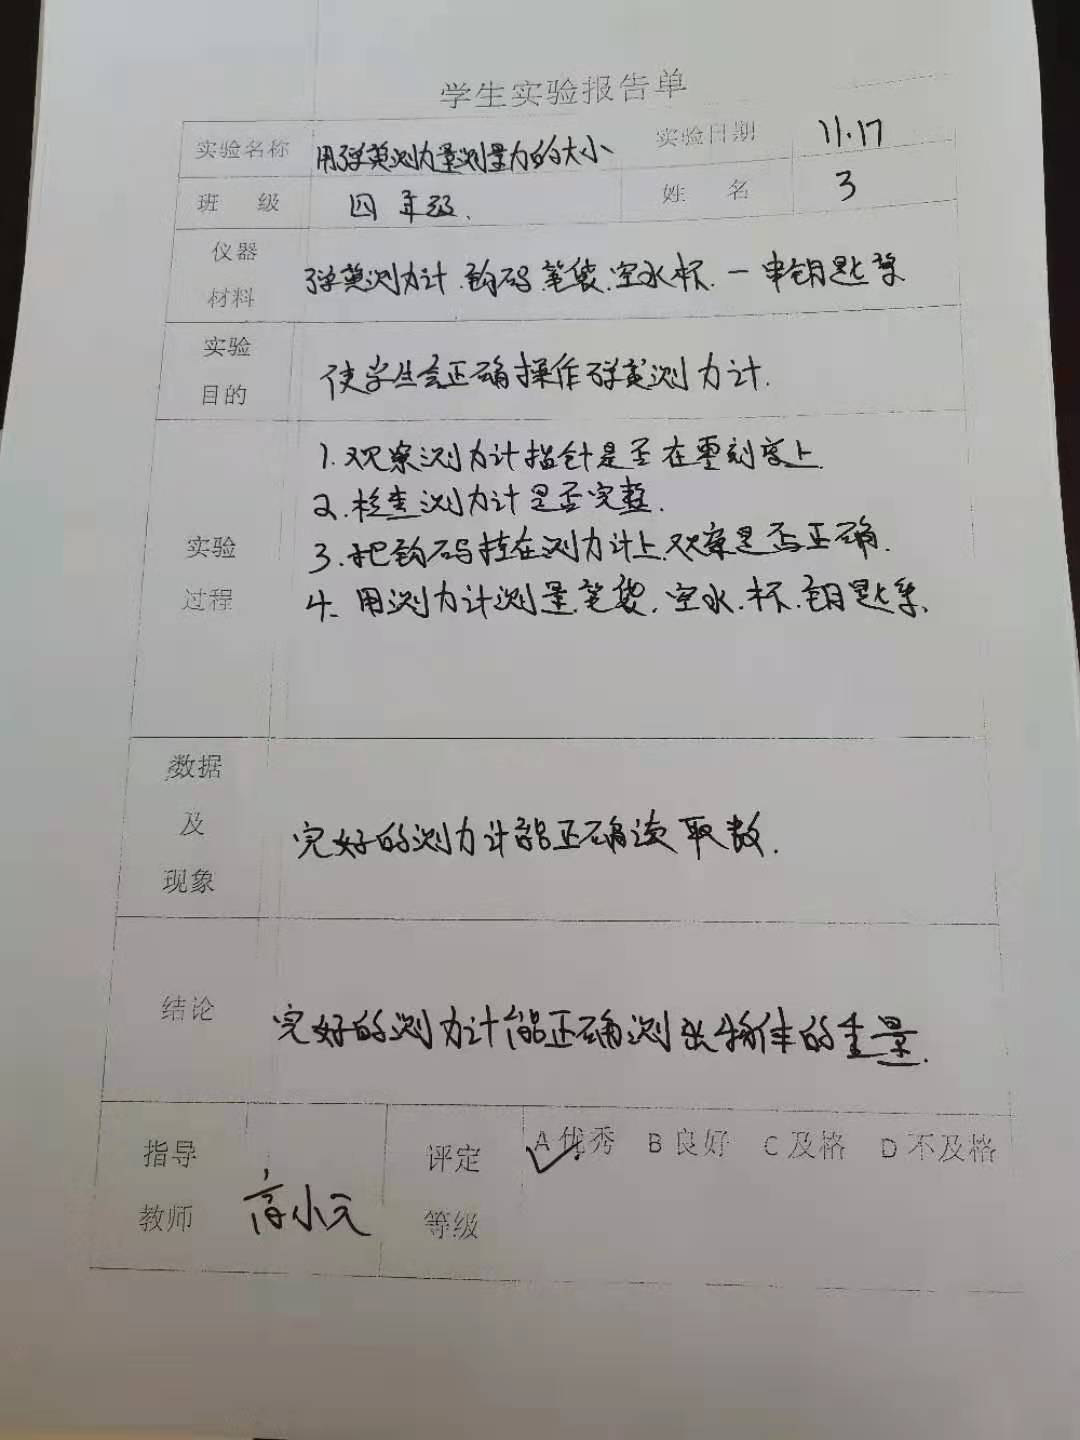 学生实验报告单
实验名称 用弹簧测力量测量力的大小 实验日期 11.17
班 级 四年级. 姓 名 3
仪器
材料 弹簧测力计.钩码.笔袋.空水杯.一串钥匙等
实验
目的 使学生会正确操作弹簧测力计.
1.观察测力计指针是否在零刻度上.
2.检查测力计是否完整.
实验 3.把钩码挂在测力计上.观察是否正确.
过程 4.用测力计测量笔袋.空水.杯.钥匙等.
数据
及 完好的测力计能正确读取数.
现象
结论 完好的测力计能正确测出物体的重量.
指导 评定 A优秀 B良好 C及格 D不及格
教师 高小元 等级